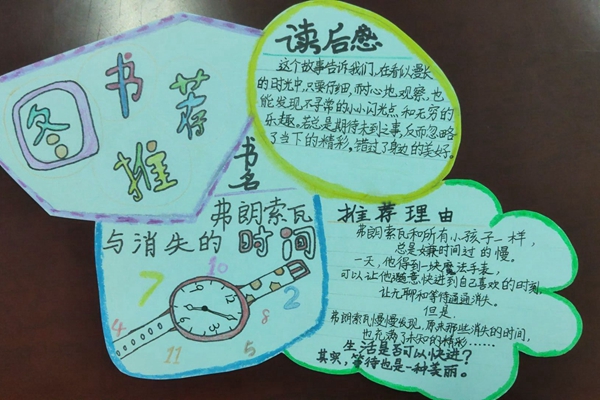 图书推荐
读后感
这个故事告诉我们，在看似漫长
的时光中，只要仔细，耐心地观察，也
能发现不寻常的小小闪光点，和无穷的
乐趣，若总是期待未到之事，反而忽略
了当下的精彩，错过了身边的美好。
书名
弗朗索瓦
与消失的时间
7
10
2
4
8
11
5
推荐理由
弗朗索瓦和所有小孩子一样，
总是嫌时间过的慢。
一天，他得到一块魔法手表，
可以让他随意快进到自己喜欢的时刻，
让无聊和等待通通消失。
但是，
弗朗索瓦慢慢发现，原来那些消失的时间，
也充满了未知的精彩……
生活是否可以快进？
其实，等待也是一种美丽。